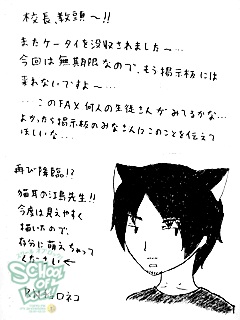 校長、教頭〜!!
またケータイを没収されました〜…
今回は無期限なので、もう掲示板には
来れないですよ〜…
…このFAX何人の生徒さんがみてるかな…
よかったら掲示板のみなさんにこのことを伝えて
ほしいな…
再び降臨!?
猫耳の江島先生!!
今度は見えやすく
描いたので、
存分に萌えちゃって
くださーい
SCHOOL OF LOCK